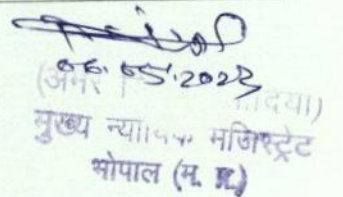 06.05.2023
(अमर दिया)
मुख्य न्यायिक मजिस्ट्रेट
भोपाल (म. प्र.)